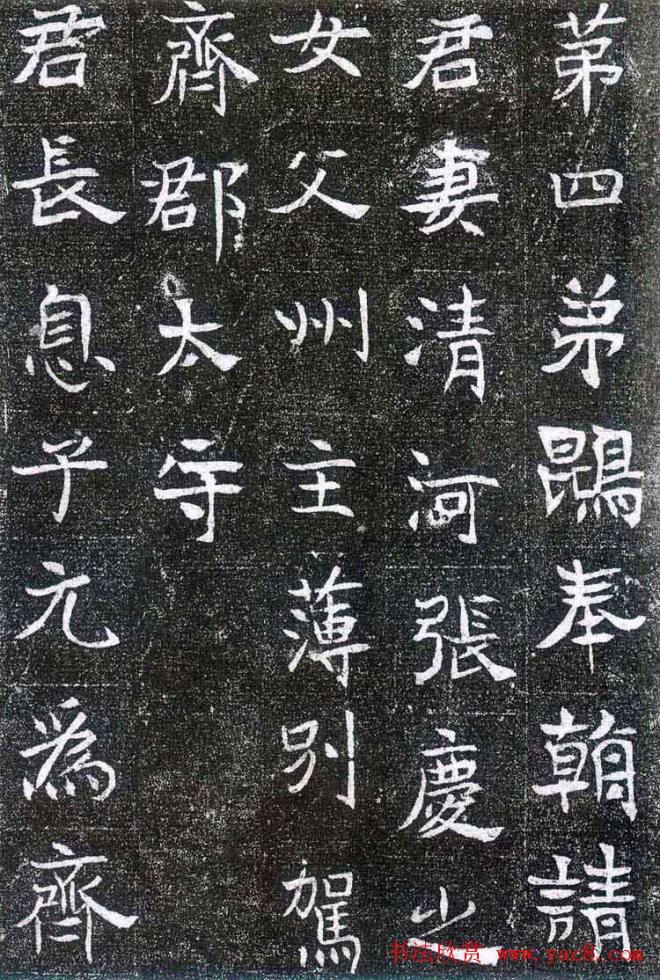 苐四弟鵾奉朝請
君妻清河張慶之
女父州主薄別駕
齊郡太守
君長息子元爲齊
书法欣赏 www.yac8.com